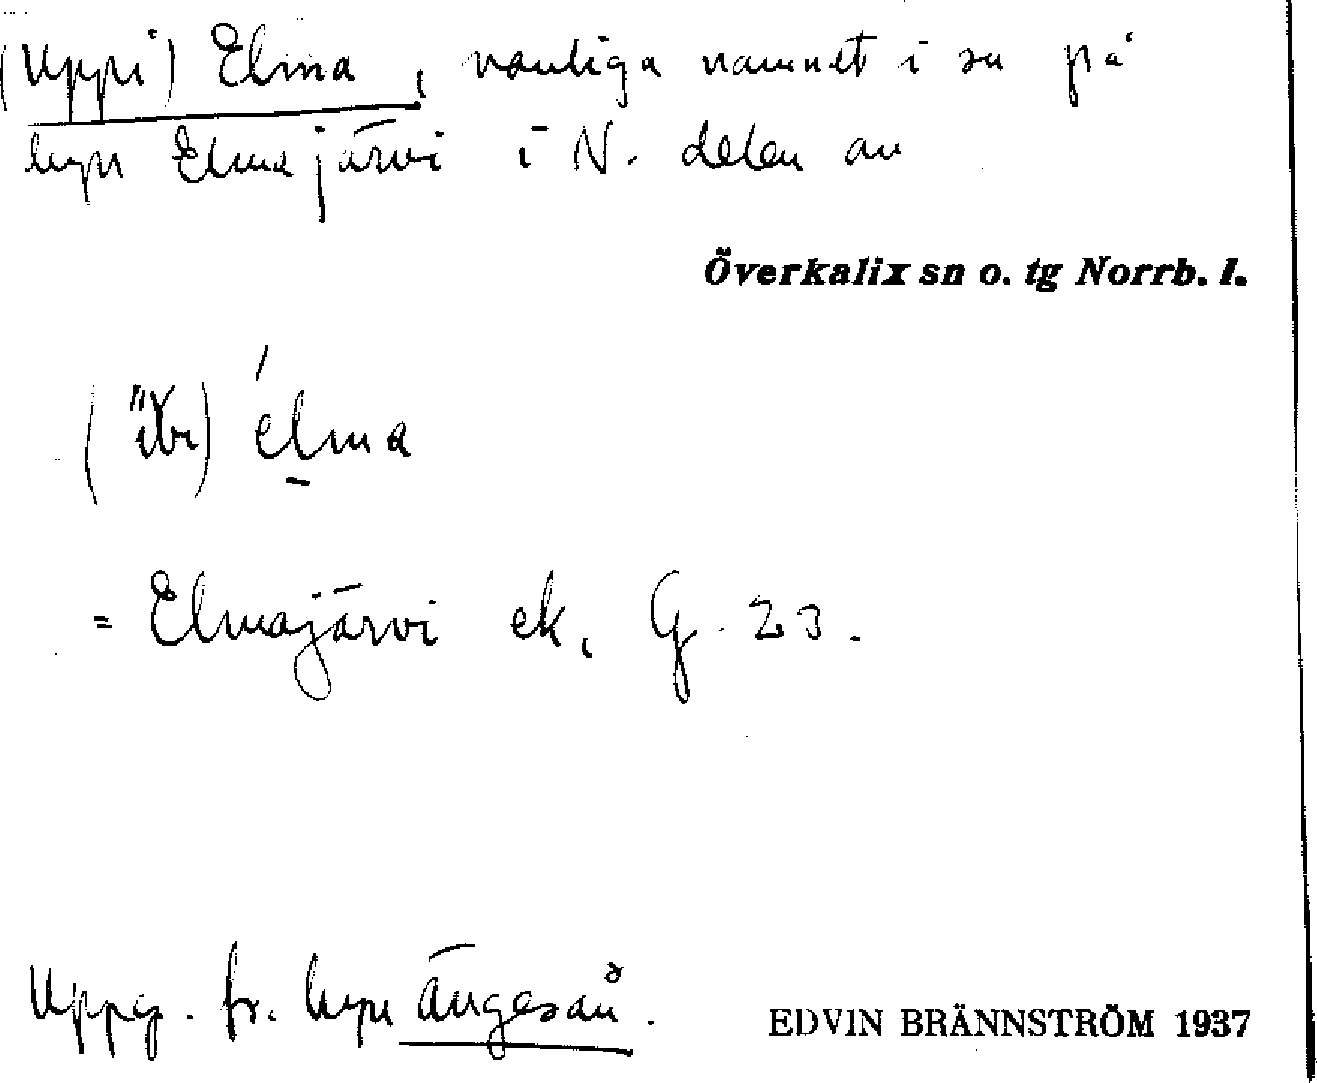 (Uppi) Elma, vanliga namnet i sn på
byn Elmajärvi i N. delen av
Överkalix sn o. tg Norrb. l.
élma
= Elmajärvi ek, G. 23.
Uppg. fr. byn Ängesån.
EDVIN BRÄNNSTRÖM 1937